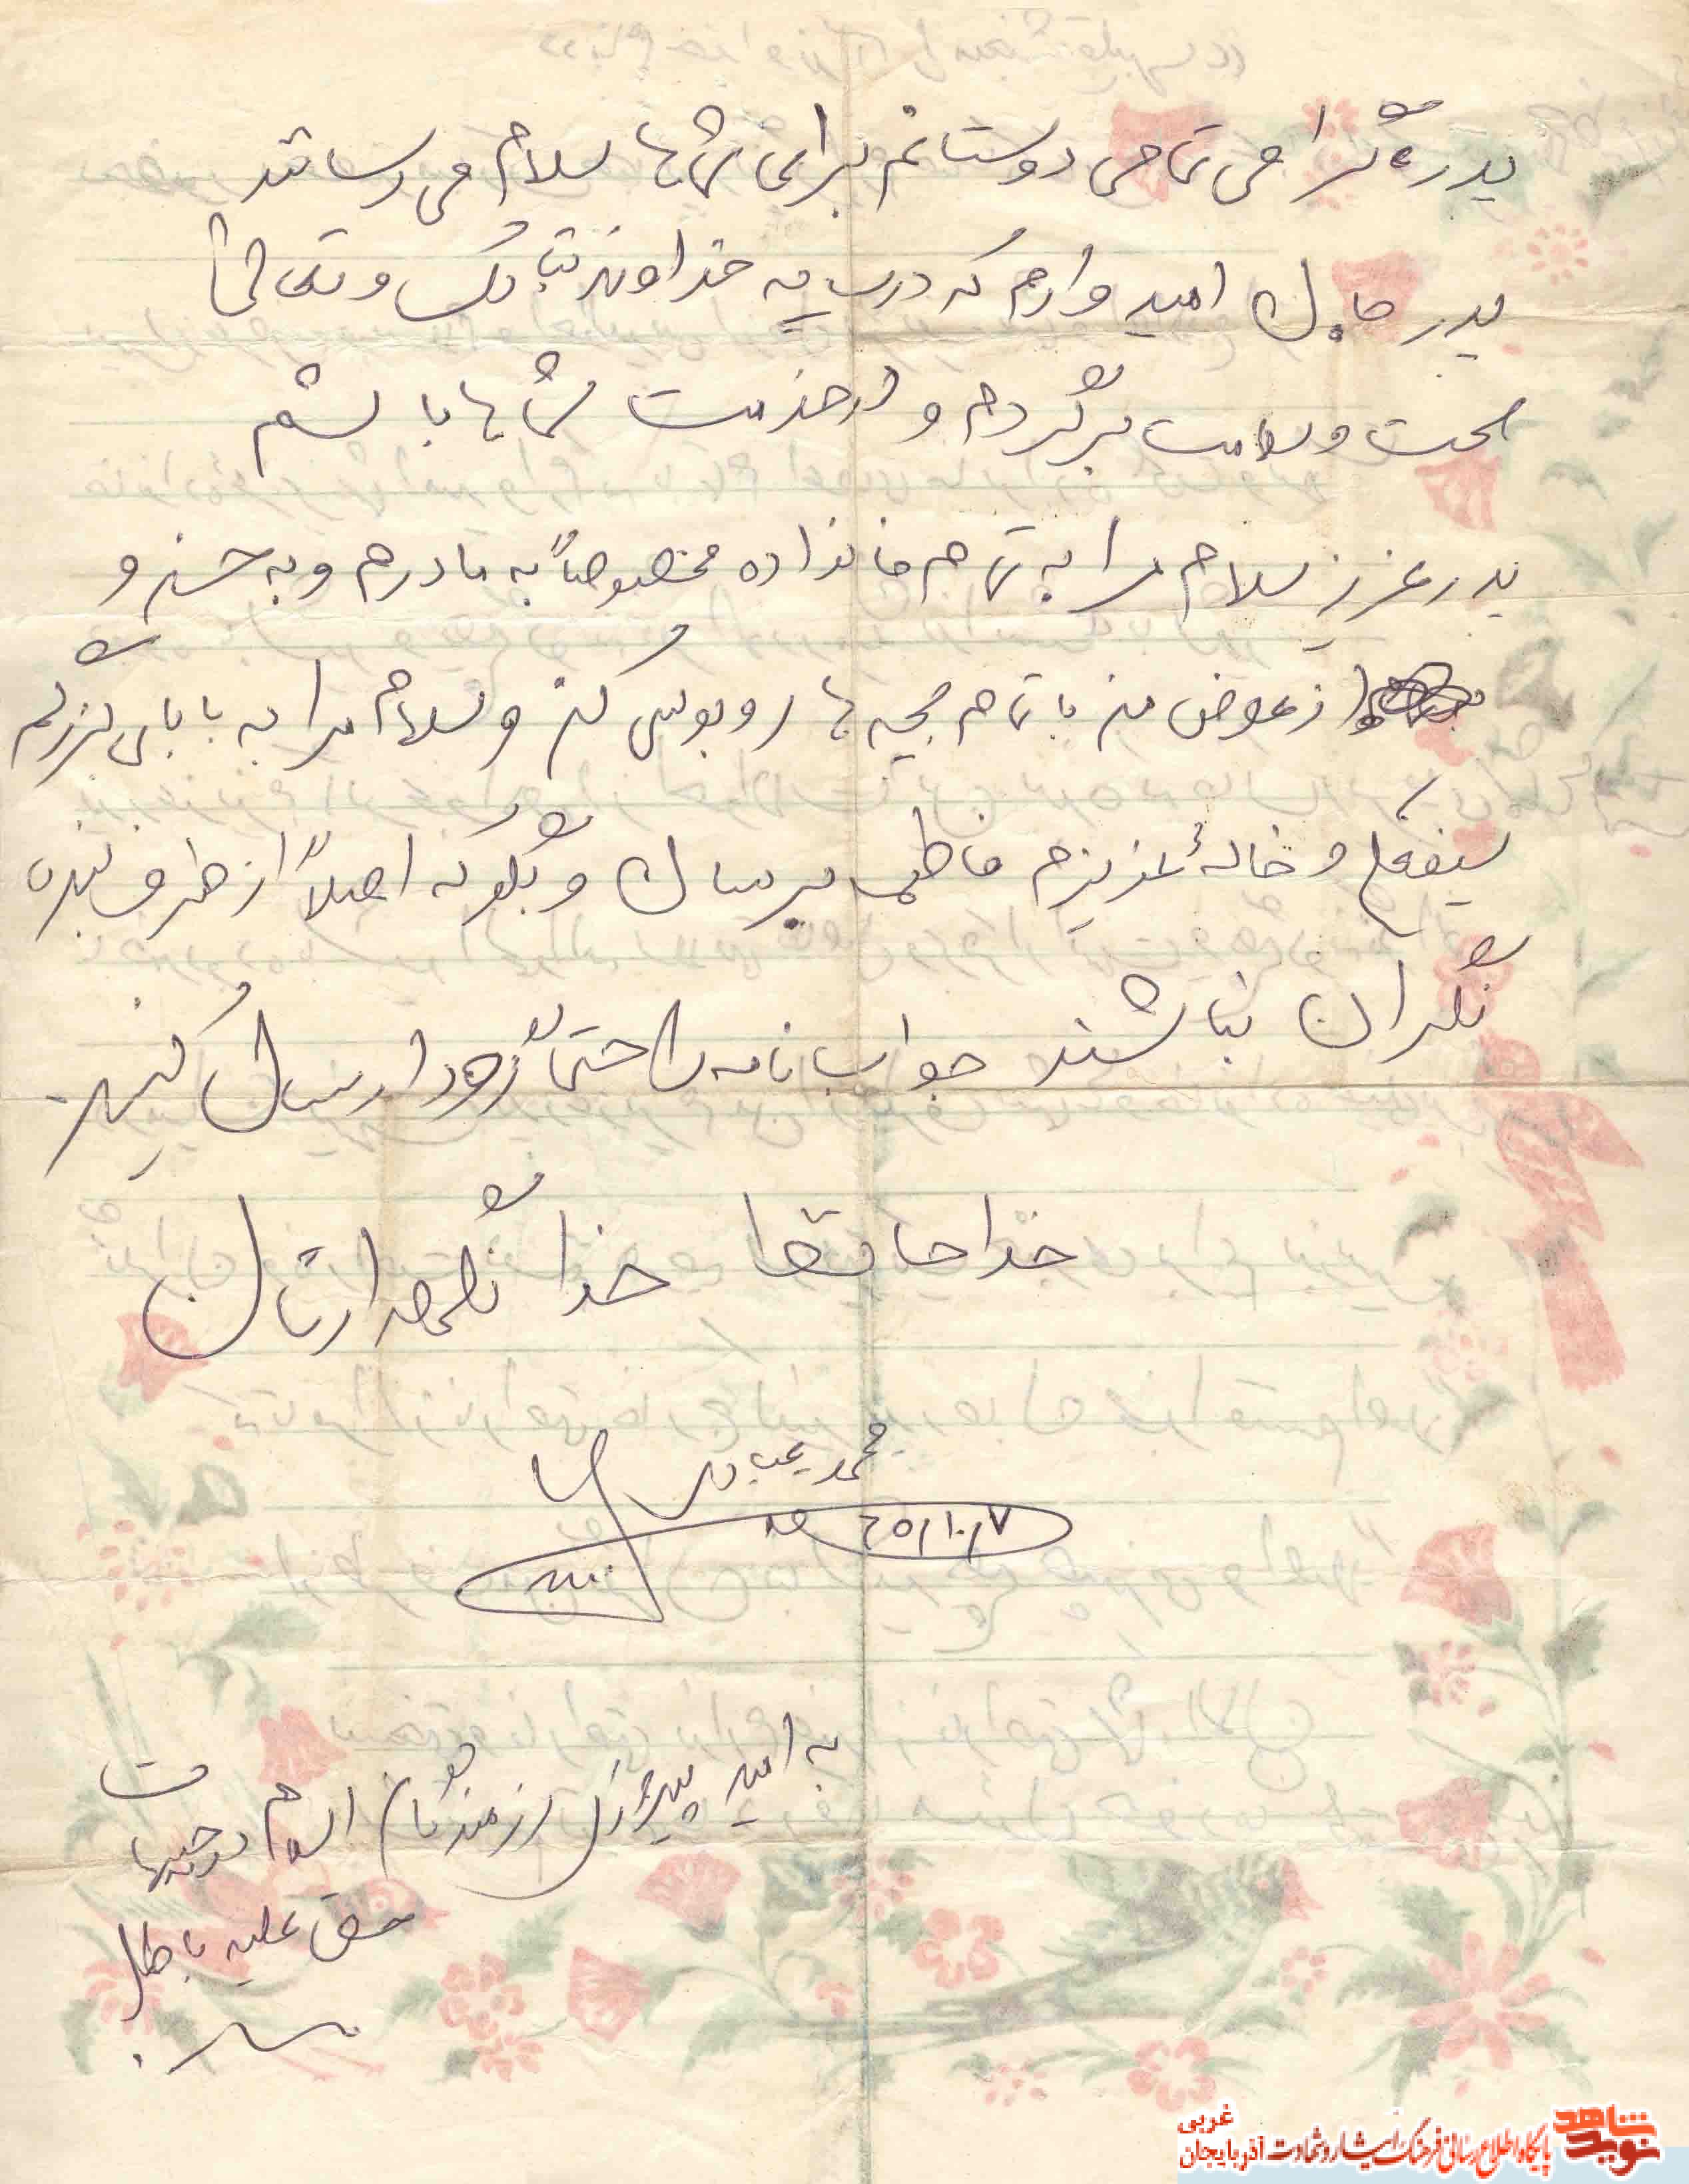 پدر گرامی تمامی دوستانم برای شماها سلام می رسانند
پدر جان امید وارم که در سایه خداوند تبارک و تعالی
صحت و سلامت برگردم و در خدمت شماها باشم
پدر عزیز سلام مرا به تمام خانواده مخصوصاً به مادرم و به حسن و
از عوض من با تمام بچه ها روبوسی کن و سلام مرا به بابای بزرگم
و خالهٔ عزیزم فاطمه برسان و بگو که اصلاً از طرف بنده
نگران نباشند جواب نامه را حتماً زود ارسال کنید.
خدا حافظ خدا نگهدارتان
محمد
۶۵/۱۰/۷
به امید پیروزی رزمندگان اسلام در جبهه
حق علیه باطل
نوید شاهد
پایگاه اطلاع رسانی فرهنگ ایثار و شهادت آذربایجان
غربی